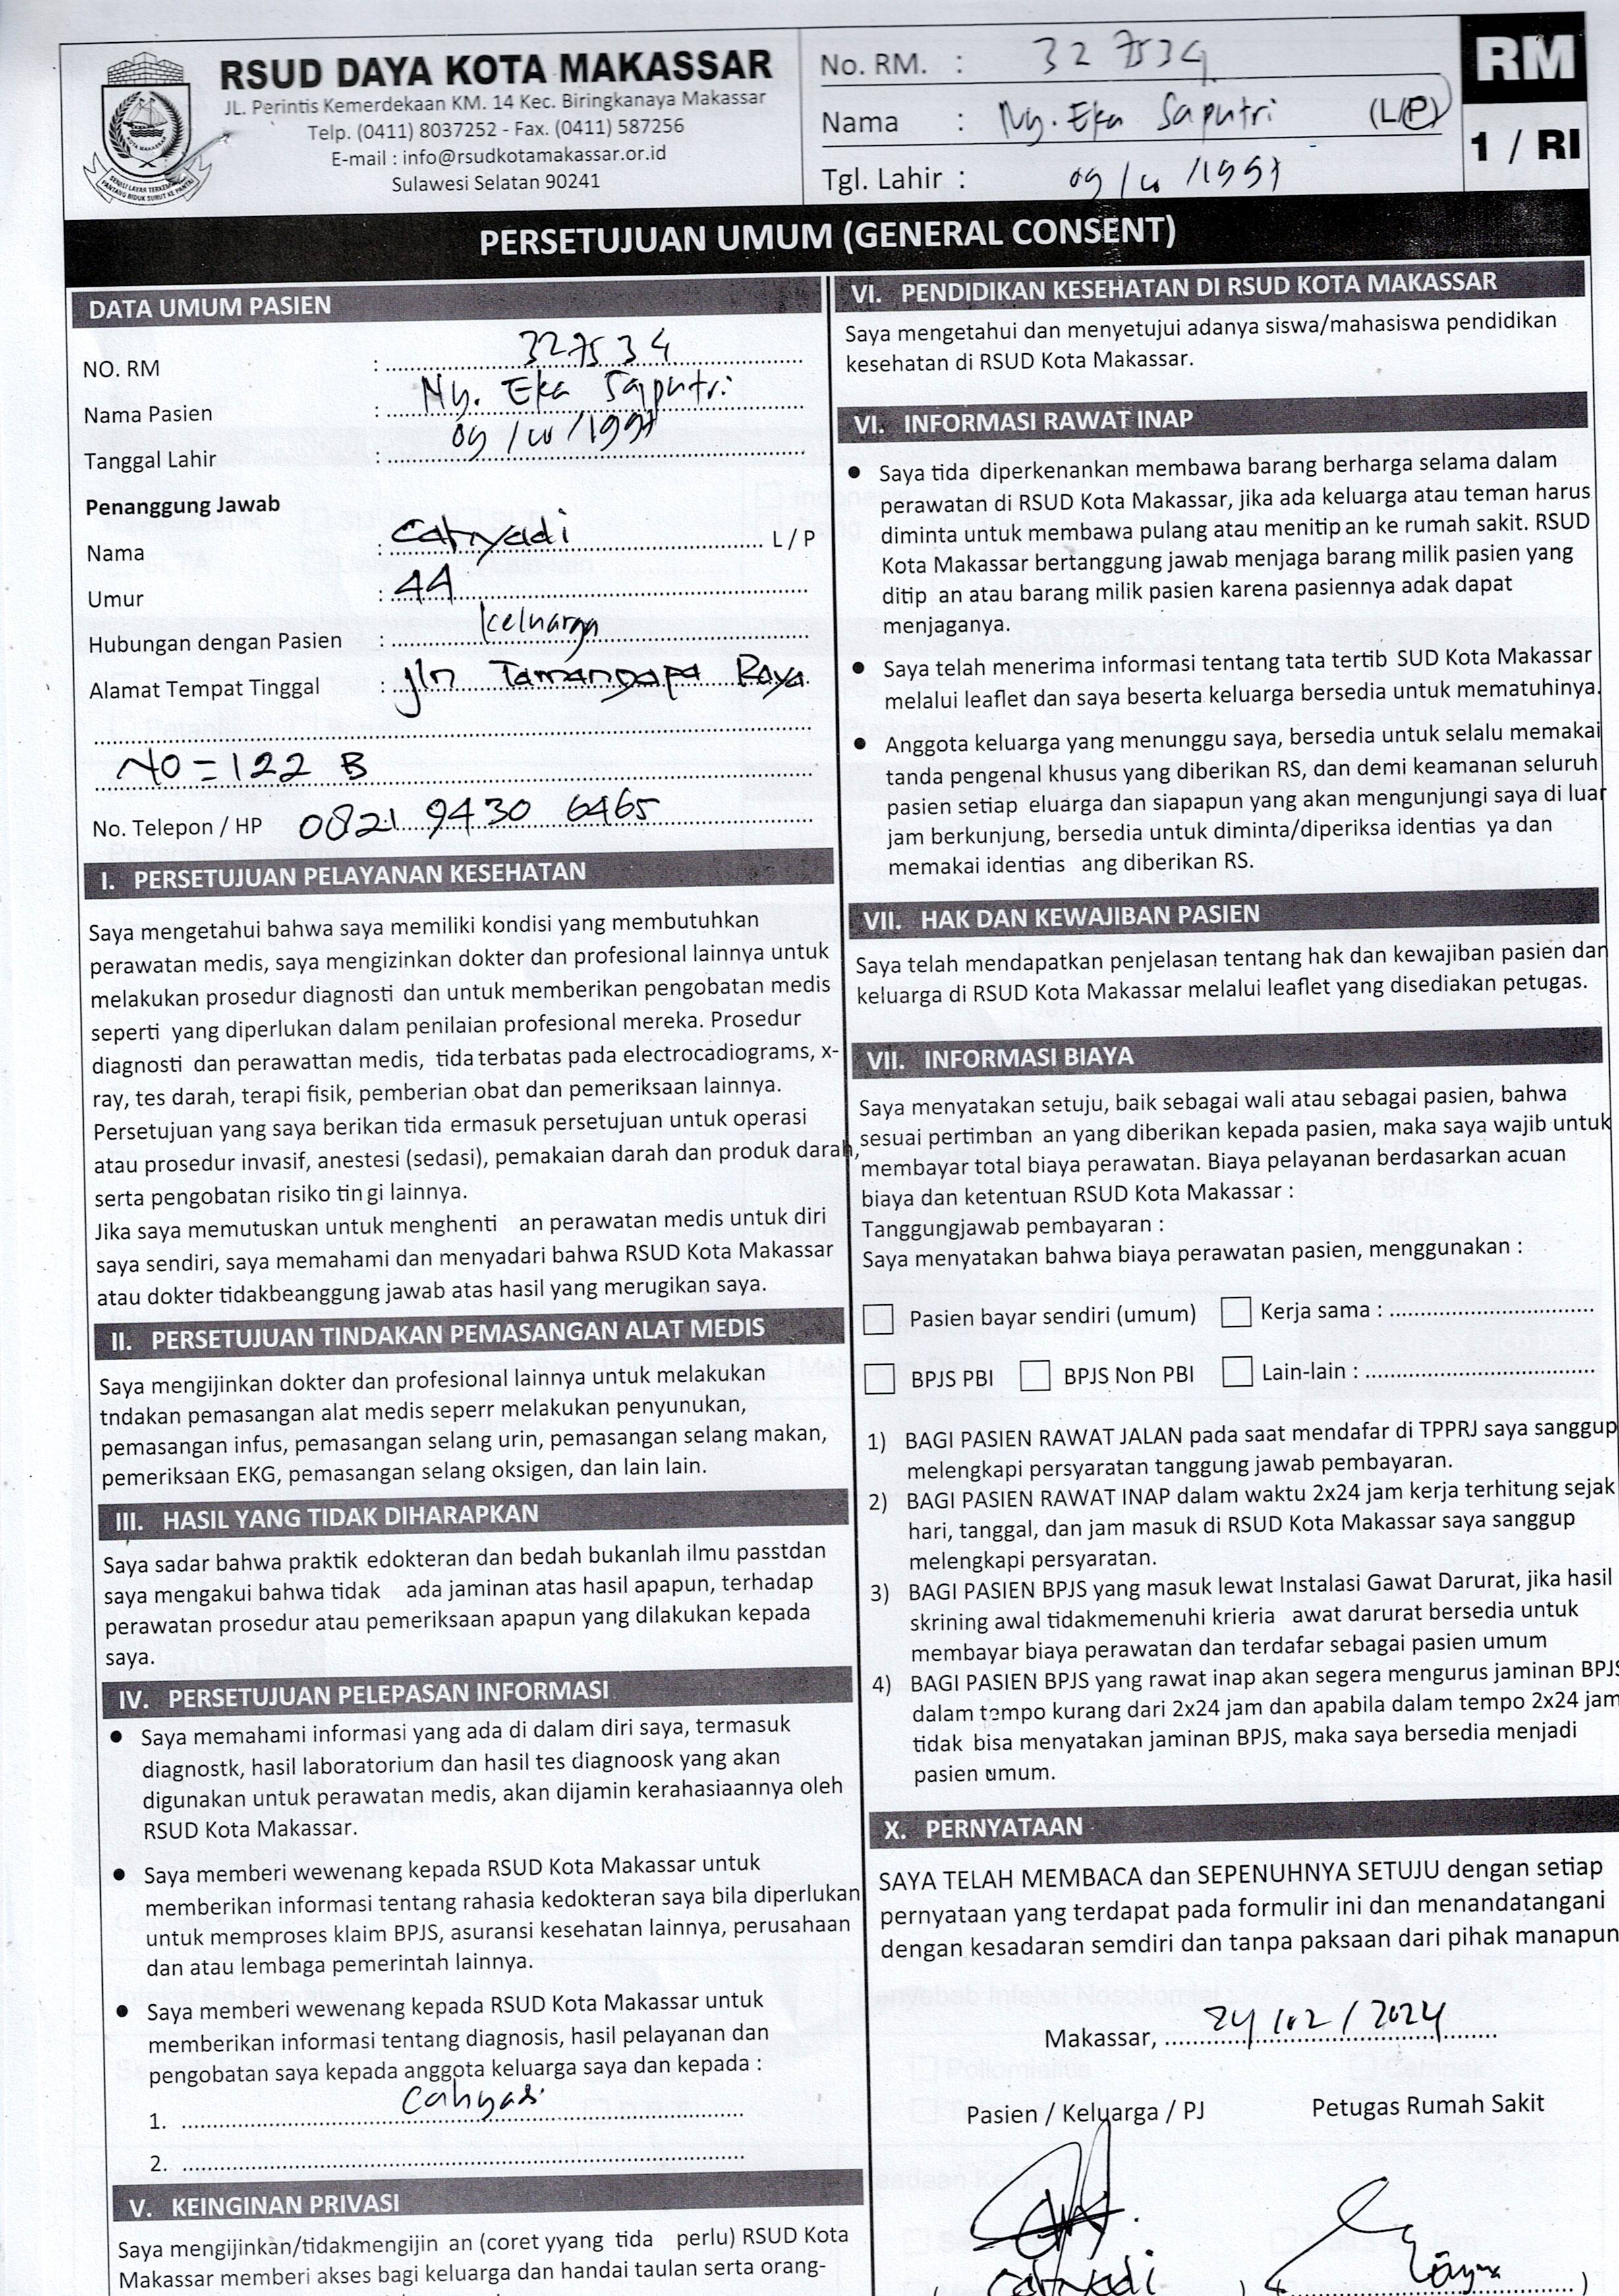 RSUD DAYA KOTA MAKASSAR
JL. Perintis Kemerdekaan KM. 14 Kec. Biringkanaya Makassar
Telp. (0411) 8037252 - Fax. (0411) 587256
E-mail : info@rsudkotamakassar.or.id
Sulawesi Selatan 90241
No. RM. : 327534
Nama : Ny. Eka Saputri (L/P)
Tgl. Lahir : 09/10/1997
RM
1 / RI
PERSETUJUAN UMUM (GENERAL CONSENT)
DATA UMUM PASIEN
NO. RM : 327534
Nama Pasien : Ny. Eka Saputri
Tanggal Lahir : 09/10/1997
Penanggung Jawab
Nama : Cahyadi L / P
Umur : 44
Hubungan dengan Pasien : keluarga
Alamat Tempat Tinggal : jln Tamangapa Raya
NO = 122 B
No. Telepon / HP 0821 9430 6465
I. PERSETUJUAN PELAYANAN KESEHATAN
Saya mengetahui bahwa saya memiliki kondisi yang membutuhkan
perawatan medis, saya mengizinkan dokter dan profesional lainnya untuk
melakukan prosedur diagnosti dan untuk memberikan pengobatan medis
seperti yang diperlukan dalam penilaian profesional mereka. Prosedur
diagnosti dan perawattan medis, tida terbatas pada electrocadiograms, x-
ray, tes darah, terapi fisik, pemberian obat dan pemeriksaan lainnya.
Persetujuan yang saya berikan tida ermasuk persetujuan untuk operasi
atau prosedur invasif, anestesi (sedasi), pemakaian darah dan produk darah,
serta pengobatan risiko tin gi lainnya.
Jika saya memutuskan untuk menghenti an perawatan medis untuk diri
saya sendiri, saya memahami dan menyadari bahwa RSUD Kota Makassar
atau dokter tidakbeanggung jawab atas hasil yang merugikan saya.
II. PERSETUJUAN TINDAKAN PEMASANGAN ALAT MEDIS
Saya mengijinkan dokter dan profesional lainnya untuk melakukan
tndakan pemasangan alat medis seperr melakukan penyunukan,
pemasangan infus, pemasangan selang urin, pemasangan selang makan,
pemeriksaan EKG, pemasangan selang oksigen, dan lain lain.
III. HASIL YANG TIDAK DIHARAPKAN
Saya sadar bahwa praktik edokteran dan bedah bukanlah ilmu passtdan
saya mengakui bahwa tidak ada jaminan atas hasil apapun, terhadap
perawatan prosedur atau pemeriksaan apapun yang dilakukan kepada
saya.
IV. PERSETUJUAN PELEPASAN INFORMASI
● Saya memahami informasi yang ada di dalam diri saya, termasuk
diagnostk, hasil laboratorium dan hasil tes diagnoosk yang akan
digunakan untuk perawatan medis, akan dijamin kerahasiaannya oleh
RSUD Kota Makassar.
● Saya memberi wewenang kepada RSUD Kota Makassar untuk
memberikan informasi tentang rahasia kedokteran saya bila diperlukan
untuk memproses klaim BPJS, asuransi kesehatan lainnya, perusahaan
dan atau lembaga pemerintah lainnya.
● Saya memberi wewenang kepada RSUD Kota Makassar untuk
memberikan informasi tentang diagnosis, hasil pelayanan dan
pengobatan saya kepada anggota keluarga saya dan kepada :
1. Cahyadi
2.
V. KEINGINAN PRIVASI
Saya mengijinkan/tidakmengijin an (coret yyang tida perlu) RSUD Kota
Makassar memberi akses bagi keluarga dan handai taulan serta orang-
VI. PENDIDIKAN KESEHATAN DI RSUD KOTA MAKASSAR
Saya mengetahui dan menyetujui adanya siswa/mahasiswa pendidikan
kesehatan di RSUD Kota Makassar.
VI. INFORMASI RAWAT INAP
● Saya tida diperkenankan membawa barang berharga selama dalam
perawatan di RSUD Kota Makassar, jika ada keluarga atau teman harus
diminta untuk membawa pulang atau menitip an ke rumah sakit. RSUD
Kota Makassar bertanggung jawab menjaga barang milik pasien yang
ditip an atau barang milik pasien karena pasiennya adak dapat
menjaganya.
● Saya telah menerima informasi tentang tata tertib SUD Kota Makassar
melalui leaflet dan saya beserta keluarga bersedia untuk mematuhinya.
● Anggota keluarga yang menunggu saya, bersedia untuk selalu memakai
tanda pengenal khusus yang diberikan RS, dan demi keamanan seluruh
pasien setiap eluarga dan siapapun yang akan mengunjungi saya di luar
jam berkunjung, bersedia untuk diminta/diperiksa identias ya dan
memakai identias ang diberikan RS.
VII. HAK DAN KEWAJIBAN PASIEN
Saya telah mendapatkan penjelasan tentang hak dan kewajiban pasien dan
keluarga di RSUD Kota Makassar melalui leaflet yang disediakan petugas.
VII. INFORMASI BIAYA
Saya menyatakan setuju, baik sebagai wali atau sebagai pasien, bahwa
sesuai pertimban an yang diberikan kepada pasien, maka saya wajib untuk
membayar total biaya perawatan. Biaya pelayanan berdasarkan acuan
biaya dan ketentuan RSUD Kota Makassar :
Tanggungjawab pembayaran :
Saya menyatakan bahwa biaya perawatan pasien, menggunakan :
Pasien bayar sendiri (umum) Kerja sama :
BPJS PBI BPJS Non PBI Lain-lain :
1) BAGI PASIEN RAWAT JALAN pada saat mendafar di TPPRJ saya sanggup
melengkapi persyaratan tanggung jawab pembayaran.
2) BAGI PASIEN RAWAT INAP dalam waktu 2x24 jam kerja terhitung sejak
hari, tanggal, dan jam masuk di RSUD Kota Makassar saya sanggup
melengkapi persyaratan.
3) BAGI PASIEN BPJS yang masuk lewat Instalasi Gawat Darurat, jika hasil
skrining awal tidakmemenuhi krieria awat darurat bersedia untuk
membayar biaya perawatan dan terdafar sebagai pasien umum
4) BAGI PASIEN BPJS yang rawat inap akan segera mengurus jaminan BPJS
dalam tempo kurang dari 2x24 jam dan apabila dalam tempo 2x24 jam
tidak bisa menyatakan jaminan BPJS, maka saya bersedia menjadi
pasien umum.
X. PERNYATAAN
SAYA TELAH MEMBACA dan SEPENUHNYA SETUJU dengan setiap
pernyataan yang terdapat pada formulir ini dan menandatangani
dengan kesadaran semdiri dan tanpa paksaan dari pihak manapun
Makassar, 24/02/2024
Pasien / Keluarga / PJ Petugas Rumah Sakit
Cahyadi